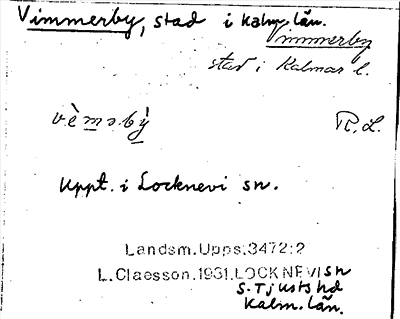 Vimmerby, stad i Kalm. län.
Vimmerby
stad i Kalmar l.
vèməbỳ R.L.
Uppt. i Locknevi sn.
Landsm.Upps.3472:2
L.Claesson.1931.LOCKNEVI sn
S. Tjusts hd
Kalm. län.